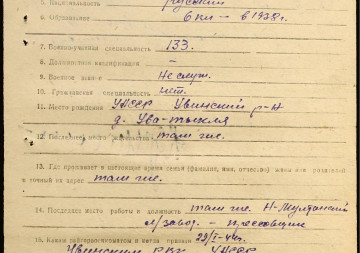 5. Национальность русский
6. Образование 6 кл — в 1928 г.
7. Военноучетная специальность 133.
8. Должностная квалификация —
9. Военное звание Не служ.
10. Гражданская специальность нет.
11. Место рождения УАССР Увинский р-н
д. Ува-тукля
12. Последнее место жительства там же.
13. Где проживает в настоящее время семья (фамилия, имя, отчество) жены или родителей
и точный их адрес там же.
14. Последнее место работы и должность там же. Н-Мултанский
л/завод — прессовщик
15. Каким райгорвоенкоматом и когда призван 22/I-44 г.
Увинским РВК УАССР